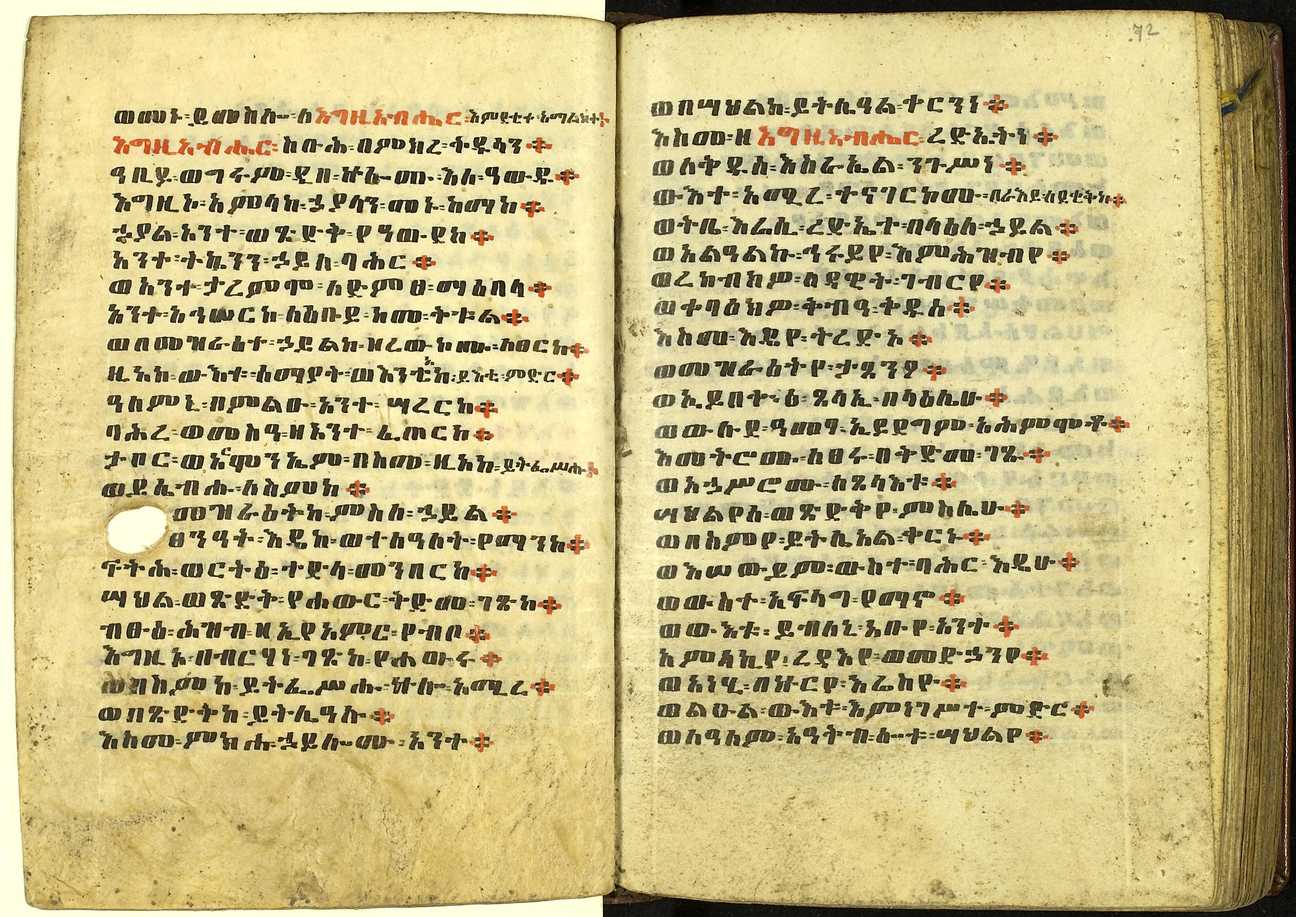 ወመኑ፡ይመስሎ፡ለእግዚአብሔር፡እምደቂቀ፡አማልክት፨
እግዚአብሔር፡ስቡሕ፡በምክረ፡ቅዱሳን፨
ዓቢይ፡ወግሩም፡ዲበ፡ኵሎሙ፡እለ፡ዓውዱ፨
እግዚኦ፡አምላከ፡ኃያላን፡መኑ፡ከማከ፨
ኃያል፡አንተ፡ወጽድቅ፡የዓውደከ፨
አንተ፡ትኴንን፡ኃይለ፡ባሕር፨
ወአንተ፡ታረምሞ፡ለድምፀ፡ማዕበላ፨
አንተ፡አኅሠርኮ፡ለዕቡይ፡ከመ፡ቅቱል፨
ወበመዝራዕተ፡ኃይልከ፡ዘረውኮሙ፡ለፀርከ፨
ዚአከ፡ውእቱ፡ሰማያት፡ወእንቲአከ፡ይእቲ፡ምድር፨
ዓለምኒ፡በምልዑ፡አንተ፡ሣረርከ፨
ባሕረ፡ወመስዓ፡ዘአንተ፡ፈጠርከ፨
ታቦር፡ወአርሞንኤም፡በስመ፡ዚአከ፡ይትፌሥሑ፨
ወይሴብሑ፡ለስምከ፨
መዝራዕትከ፡ምስለ፡ኃይል፨
ፀንዓት፡እዴከ፡ወተለዓለት፡የማንከ፨
ፍትሕ፡ወርትዕ፡ተድላ፡መንበርከ፨
ሣህል፡ወጽድቅ፡የሐውር፡ቅድመ፡ገጽከ፨
ብፁዕ፡ሕዝብ፡ዘኢየአምር፡የብቦ፨
እግዚኦ፡በብርሃነ፡ገጽከ፡የሐውሩ፨
ወበስምከ፡ይትፌሥሑ፡ኵሎ፡አሚረ፨
ወበጽድቅከ፡ይትሌዓሉ፨
እስመ፡ምክሐ፡ኃይሎሙ፡አንተ፨
72
ወበሣህልከ፡ይትሌዓል፡ቀርንነ፨
እስመ፡ዘእግዚአብሔር፡ረድኤትነ፨
ወለቅዱሰ፡እስራኤል፡ንጉሥነ፨
ውእተ፡አሚረ፡ተናገርኮሙ፡በራእይ፡ለደቂቅከ፨
ወትቤ፡እሬሲ፡ረድኤተ፡በላዕለ፡ኃያል፨
ወአልዓልኩ፡ኅሩይየ፡እምሕዝብየ፨
ወረከብክዎ፡ለዳዊት፡ገብርየ፨
ወቀባዕክዎ፡ቅብዓ፡ቅዱሰ፨
እስመ፡እዴየ፡ትረድኦ፨
ወመዝራዕትየ፡ታጸንዖ፨
ወኢይበቍዕ፡ጸላኢ፡በላዕሌሁ፨
ወውሉደ፡ዓመፃ፡ኢይደግም፡አሕምሞቶ፨
እመትሮሙ፡ለፀሩ፡በቅድመ፡ገጹ፨
ወአኃሥሮሙ፡ለጸላእቱ፨
ሣህልየሰ፡ወጽድቅየ፡ምስሌሁ፨
ወበስምየ፡ይትሌአል፡ቀርኑ፨
ወእሠውይም፡ውስተ፡ባሕር፡እዴሁ፨
ወውስተ፡አፍላግ፡የማኖ፨
ወውእቱ፡ይብለኒ፡አቡየ፡አንተ፨
አምላኪየ፡ረዳእየ፡ወመድኃንየ፨
ወአነሂ፡በኵርየ፡እሬስዮ፨
ወልዑል፡ውእቱ፡እምነገሥተ፡ምድር፨
ወለዓለም፡አዓቅብ፡ሎቱ፡ሣህልየ፨